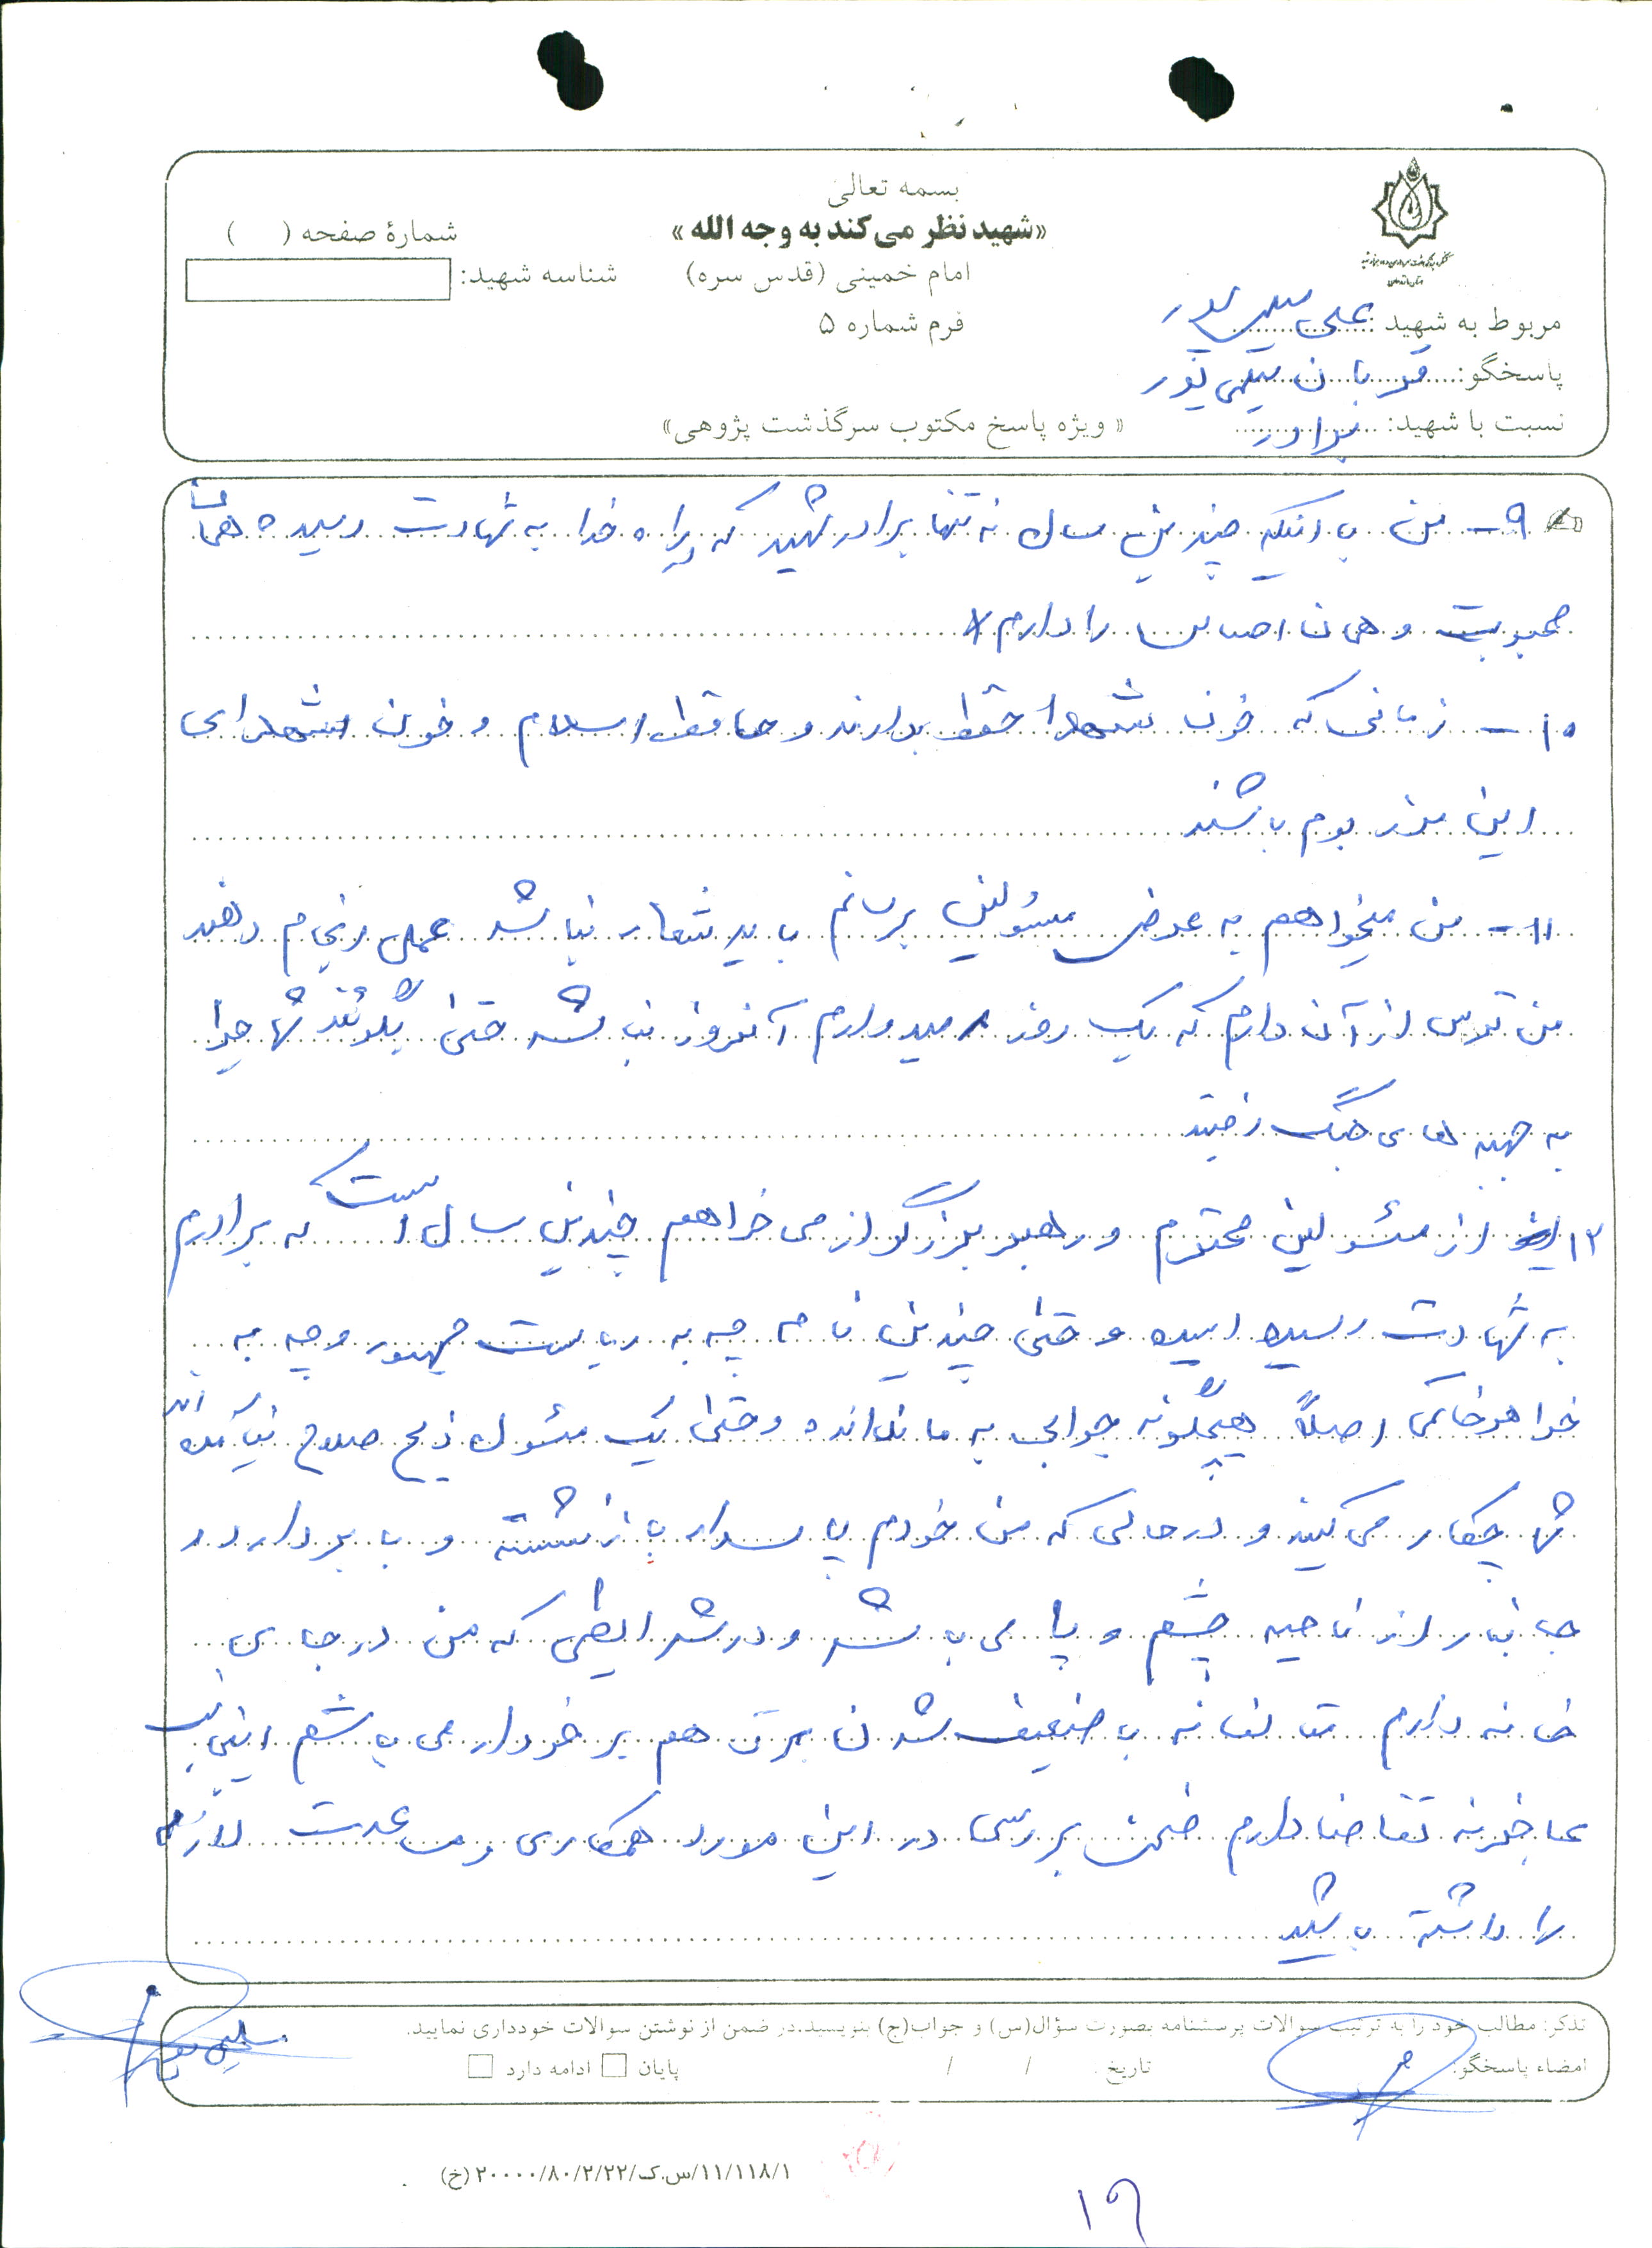 بسمه تعالی
«شهید نظر می‌کند به وجه الله»
امام خمینی (قدس سره)
فرم شماره ۵
شمارهٔ صفحه ( )
شناسه شهید:
مربوط به شهید: علی سلیمی پور
پاسخگو: قربان سلیمی پور
نسبت با شهید: برادر
« ویژه پاسخ مکتوب سرگذشت پژوهی»
۹- من با اینکه چندین سال نه تنها برادر شهید که براه خدا به شهادت رسیده همان
محبوبیت و همان احساس را دارم
۱۰- زمانی که خون شهدا حفظ بدارند و حافظ اسلام و خون شهدای
این مرز بوم باشند
۱۱- من میخواهم به عرض مسئولین برسانم باید شعار نباشد عملی انجام دهند
من ترس از آن دارم که یک روز امیدوارم آنروز نباشد حتی بگویند شما چرا
به جبهه های جنگ رفتید
۱۲ از مسئولین محترم و رهبر بزرگوار می خواهم چندین سال است که برادرم
به شهادت رسیده و حتی چندین نامه چه به ریاست جمهور و چه به
اصلاً هیچگونه جوابی به ما نداده و حتی یک مسئول ذیصلاح نیآمده اند
شما چکار می کنید و در حالی که من خودم پاسدار بازنشسته و با برادر در
جانباز از ناحیه چشم و پا می باشد و در شرایطی که من در جای
خانه دارم متاسفانه با ضعیف شدن برق هم برخوردار می باشم اینجانب
عاجزانه تقاضا دارم ضمن بررسی در این مورد همکاری و مساعدت لازم
را داشته باشید
تذکر: مطالب خود را به ترتیب سوالات پرسشنامه بصورت سؤال(س) و جواب(ج) بنویسید.در ضمن از نوشتن سوالات خودداری نمایید.
امضاء پاسخگو:
تاریخ: / /
پایان ادامه دارد
۱۱/۱۱۸/۱/س.ک/۲۰۰۰۰/۸۰/۲/۲۲ (خ)
۱۹